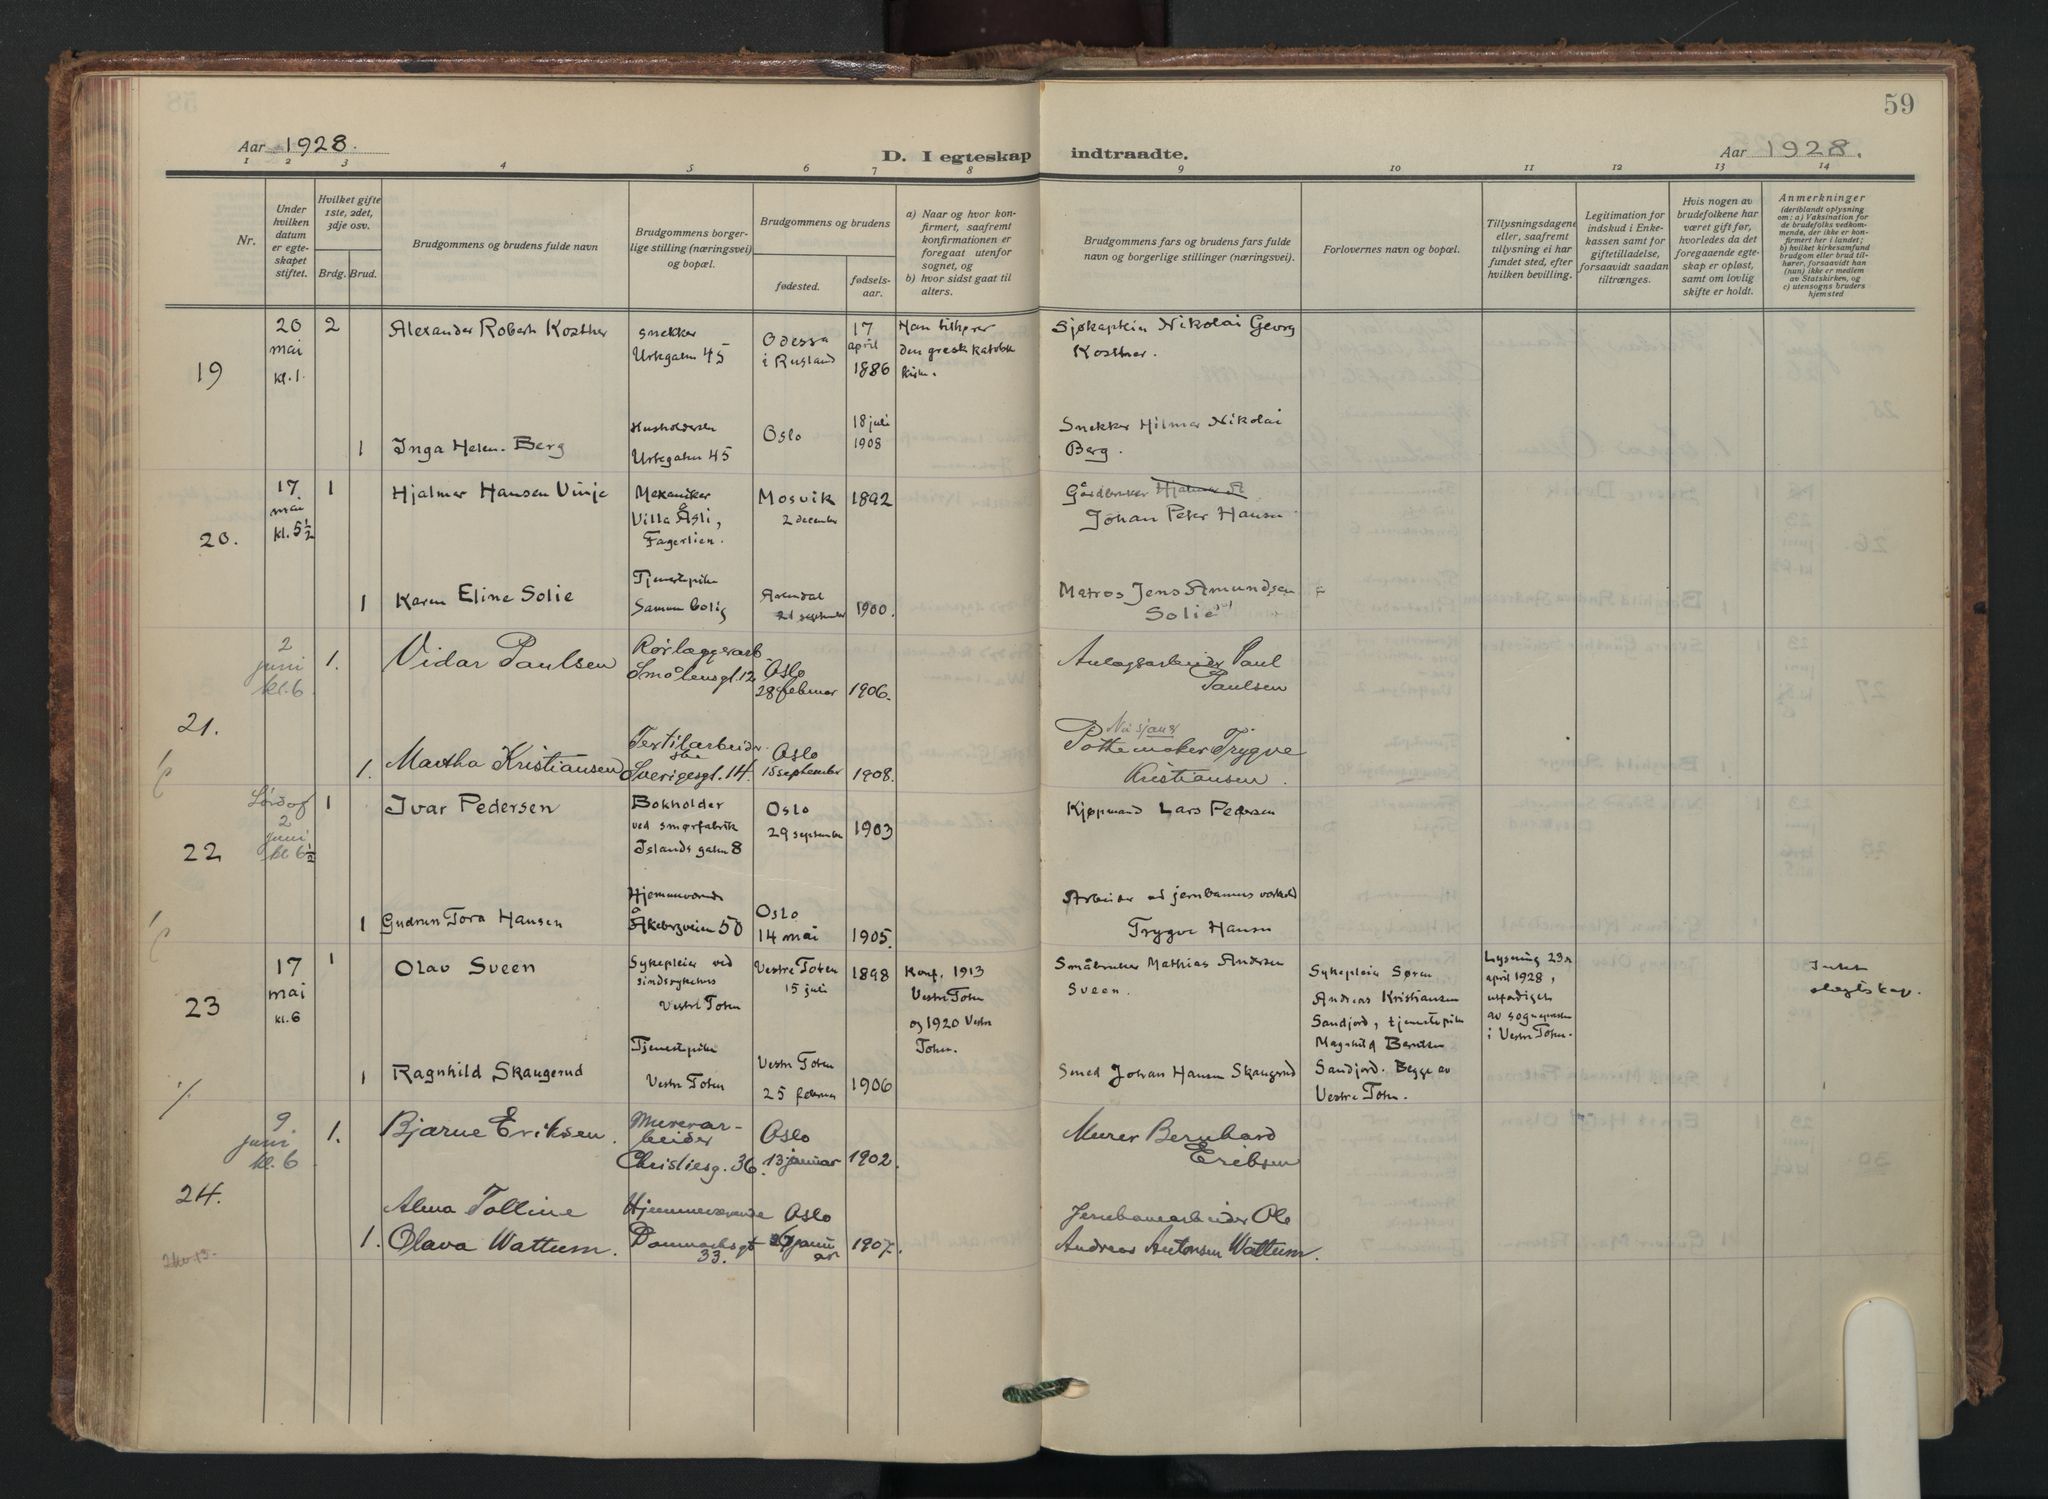 59
Aar 1928.
D. I egteskap indtraadte.
Aar 1928.
1 2 3 4 5 6 7 8 9 10 11 12 13 14
Nr.
Under
hvilken
datum
er egte-
skapet
stiftet.
Hvilket gifte
1ste, 2det,
3dje osv.
Brdg. Brud.
Brudgommens og brudens fulde navn
Brudgommens borger-
lige stilling (næringsvei)
og bopæl.
Brudgommens og brudens
fødested.
fødsels-
aar.
a) Naar og hvor kon-
firmert, saafremt
konfirmationen er
foregaat utenfor
sognet, og
b) hvor sidst gaat til
alters.
Brudgommens fars og brudens fars fulde
navn og borgerlige stillinger (næringsvei).
Forlovernes navn og bopæl.
Tillysningsdagene
eller, saafremt
tillysning ei har
fundet sted, efter
hvilken bevilling.
Legitimation for
indskud i Enke-
kassen samt for
giftetilladelse,
forsaavidt saadan
tiltrænges.
Hvis nogen av
brudefolkene har
været gift før,
hvorledes da det
foregaaende egte-
skap er opløst,
samt om lovlig
skifte er holdt.
Anmerkninger
(deriblandt oplysning
om: a) Vaksination for
de brudefolks vedkom-
mende, der ikke er kon-
firmert her i landet;
b) hvilket kirkesamfund
brudgom eller brud til-
hører, forsaavidt han
(nun) ikke er medlem
av Statskirken, og
c) utensogns bruders
hjemsted
19
20
mai
kl. 1
2
Alexander Robert Kosther
Snekker
Urtegaten 45
Odessa
i Rusland
17
april
1886
Han tilhører
den gresk katolsk
kirke.
Sjøkaptein Nikolai Georg
Kosther.
1
Inga Helen. Berg
Urtegaten 45
Oslo
18 juli
1908
Snekker Hilmar Nikolai
Berg.
20.
17.
mai
kl. 5 1/2
1
Hjalmar Hansen Vinje
Mekaniker
Villa Åsli,
Fagerlien.
Mosvik
2 december
1892
Gårdbruker
Johan Peter Hansen
1
Karen Eline Solie
Tjenestepike
Samme bolig
Arendal
21 september
1900.
Matros Jens Amundsen
Solie
21.
2
juni
kl. 6
1.
Vidar Paulsen
Rørlæggerarb.
Smålensgt. 12
Oslo
28 februar
1906.
Anlægsarbeider Paul
Paulsen
1.
Martha Kristiansen
Textilarbeider-
ske
Sverigesgt. 14.
Oslo
15 september
1908.
Pottemaker Trygve
Kristiansen
22
Lørdag
2
juni
kl. 6 1/2
1
Ivar Pedersen
Bokholder
ved smørfabrik
Islands gaten 8
Oslo
29 september
1903
Kjøpmand Lars Pedersen
1
Gudrun Tora Hansen
Hjemmeværende
Åkebergveien 50
Oslo
14 mai
1905.
Arbeider ved jernbanens verksted
Trygve Hansen
23
17
mai
kl. 6
1
Olav Sveen
Sykepleier ved
sindssykehus
Vestre Toten
Vestre Toten
15 juli
1898
Konf. 1913
Vestre Toten
og 1920 Vestre
Toten.
Småbruker Mathias Andersen
Sveen.
Sykepleier Søren
Andreas Kristiansen
Sandjord, tjenestepike
Magnhild Berntsen
Sandjord. Begge av
Vestre Toten.
Lysning 23de
april 1928,
utfærdiget
av sognepresten
i Vestre Toten.
Intet
slegtskap.
1
Ragnhild Skaugerud
Tjenestepike
Vestre Toten
Vestre Toten
25 februar
1906
Smed Johan Hansen Skaugerud
24.
9.
juni
kl. 6
1.
Bjarne Eriksen.
Murerar-
beider
Christiesg. 36.
Oslo
13 januar
1902.
Murer Bernhard
Eriksen
1.
Alma Tolline
Olava Wattum.
Hjemmeværende
Danmarksgt
33.
Oslo
1907.
Jernbanearbeider Ole
Andreas Antonsen Wattum.